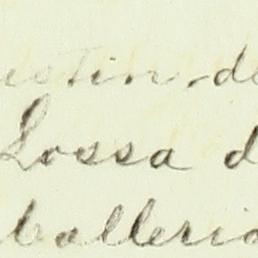 ustin de
Lossa d
balleria